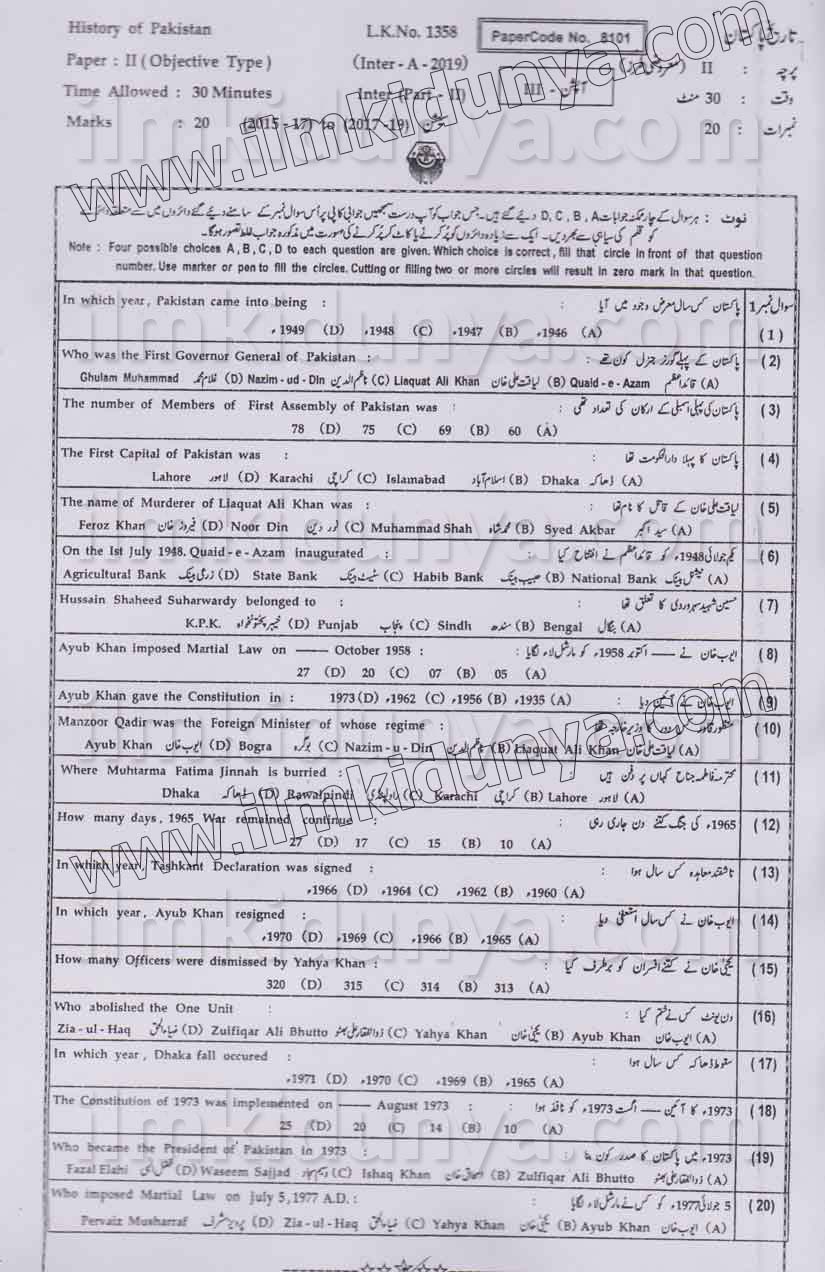 History of Pakistan L.K.No. 1358 PaperCode No. 8101 تاریخ پاکستان
Paper : II ( Objective Type ) (Inter - A - 2019) پرچہ : II (معروضی طرز)
Time Allowed : 30 Minutes Inter (Part - II) آپشن - III وقت : 30 منٹ
Marks : 20 (2015 - 17) to (2017 -19) سیشن نمبرات : 20
نوٹ : ہر سوال کے چار ممکنہ جوابات D, C, B, A دیئے گئے ہیں۔ جس جواب کو آپ درست سمجھیں جوابی کاپی پر اُس سوال نمبر کے سامنے دیئے گئے دائروں میں سے متعلقہ دائرے
کو قلم کی سیاہی سے بھر دیں۔ ایک سے زیادہ دائروں کو پُر کرنے یا کاٹ کر پُر کرنے کی صورت میں مذکورہ جواب غلط تصور ہوگا۔
Note : Four possible choices A , B , C , D to each question are given. Which choice is correct , fill that circle in front of that question
number. Use marker or pen to fill the circles. Cutting or filling two or more circles will result in zero mark in that question.
In which year, Pakistan came into being : پاکستان کس سال معرض وجود میں آیا سوال نمبر 1
1949ء (D) 1948ء (C) 1947ء (B) 1946ء (A) (1)
Who was the First Governor General of Pakistan : پاکستان کے پہلے گورنر جنرل کون تھے : (2)
Ghulam Muhammad غلام محمد (D) Nazim - ud - Din ناظم الدین (C) Liaquat Ali Khan لیاقت علی خان (B) Quaid - e - Azam قائد اعظم (A)
The number of Members of First Assembly of Pakistan was : پاکستان کی پہلی اسمبلی کے ارکان کی تعداد تھی : (3)
78 (D) 75 (C) 69 (B) 60 (A)
The First Capital of Pakistan was : پاکستان کا پہلا دارالحکومت تھا : (4)
Lahore لاہور (D) Karachi کراچی (C) Islamabad اسلام آباد (B) Dhaka ڈھاکہ (A)
The name of Murderer of Liaquat Ali Khan was : لیاقت علی خان کے قاتل کا نام تھا : (5)
Feroz Khan فیروز خان (D) Noor Din نور دین (C) Muhammad Shah محمد شاہ (B) Syed Akbar سید اکبر (A)
On the Ist July 1948, Quaid - e - Azam inaugurated : یکم جولائی 1948ء کو قائد اعظم نے افتتاح کیا : (6)
Agricultural Bank زرعی بینک (D) State Bank سٹیٹ بینک (C) Habib Bank حبیب بینک (B) National Bank نیشنل بینک (A)
Hussain Shaheed Suharwardy belonged to : حسین شہید سہروردی کا تعلق تھا : (7)
K.P.K. خیبر پختونخواہ (D) Punjab پنجاب (C) Sindh سندھ (B) Bengal بنگال (A)
Ayub Khan imposed Martial Law on —— October 1958 : ایوب خان نے —— اکتوبر 1958ء کو مارشل لاء لگایا : (8)
27 (D) 20 (C) 07 (B) 05 (A)
Ayub Khan gave the Constitution in : 1973 (D) 1962ء (C) 1956ء (B) 1935ء (A) ایوب خان نے آئین دیا : (9)
Manzoor Qadir was the Foreign Minister of whose regime : منظور قادر کس دور کا وزیر خارجہ تھا : (10)
Ayub Khan ایوب خان (D) Bogra بوگرہ (C) Nazim - u - Din ناظم الدین (B) Liaquat Ali Khan لیاقت علی خان (A)
Where Muhtarma Fatima Jinnah is burried : محترمہ فاطمہ جناح کہاں پر دفن ہیں : (11)
Dhaka ڈھاکہ (D) Rawalpindi راولپنڈی (C) Karachi کراچی (B) Lahore لاہور (A)
How many days , 1965 War remained continue : 1965ء کی جنگ کتنے دن جاری رہی : (12)
27 (D) 17 (C) 15 (B) 10 (A)
In which year, Tashkant Declaration was signed : تاشقند معاہدہ کس سال ہوا : (13)
1966ء (D) 1964ء (C) 1962ء (B) 1960ء (A)
In which year , Ayub Khan resigned : ایوب خان نے کس سال استعفیٰ دیا : (14)
1970ء (D) 1969ء (C) 1966ء (B) 1965ء (A)
How many Officers were dismissed by Yahya Khan : یحییٰ خان نے کتنے افسران کو برطرف کیا : (15)
320 (D) 315 (C) 314 (B) 313 (A)
Who abolished the One Unit : ون یونٹ کس نے ختم کیا : (16)
Zia - ul - Haq ضیاء الحق (D) Zulfiqar Ali Bhutto ذوالفقار علی بھٹو (C) Yahya Khan یحییٰ خان (B) Ayub Khan ایوب خان (A)
In which year , Dhaka fall occured : سقوط ڈھاکہ کس سال ہوا : (17)
1971ء (D) 1970ء (C) 1969ء (B) 1965ء (A)
The Constitution of 1973 was implemented on —— August 1973 : 1973ء کا آئین —— اگست 1973ء کو نافذ ہوا : (18)
25 (D) 20 (C) 14 (B) 10 (A)
Who became the President of Pakistan in 1973 : 1973ء میں پاکستان کا صدر کون بنا : (19)
Fazal Elahi فضل الٰہی (D) Waseem Sajjad وسیم سجاد (C) Ishaq Khan اسحاق خان (B) Zulfiqar Ali Bhutto ذوالفقار علی بھٹو (A)
Who imposed Martial Law on july 5,1977 A.D. : 5 جولائی 1977ء کو کس نے مارشل لاء لگایا : (20)
Pervaiz Musharraf پرویز مشرف (D) Zia - ul - Haq ضیاء الحق (C) Yahya Khan یحییٰ خان (B) Ayub Khan ایوب خان (A)
www.ilmkidunya.com
www.ilmkidunya.com
ilmkidunya.com
ilmkidunya.com
ilmkidunya.com
ilmkidunya.com
ilmkidunya.com
ilmkidunya.com